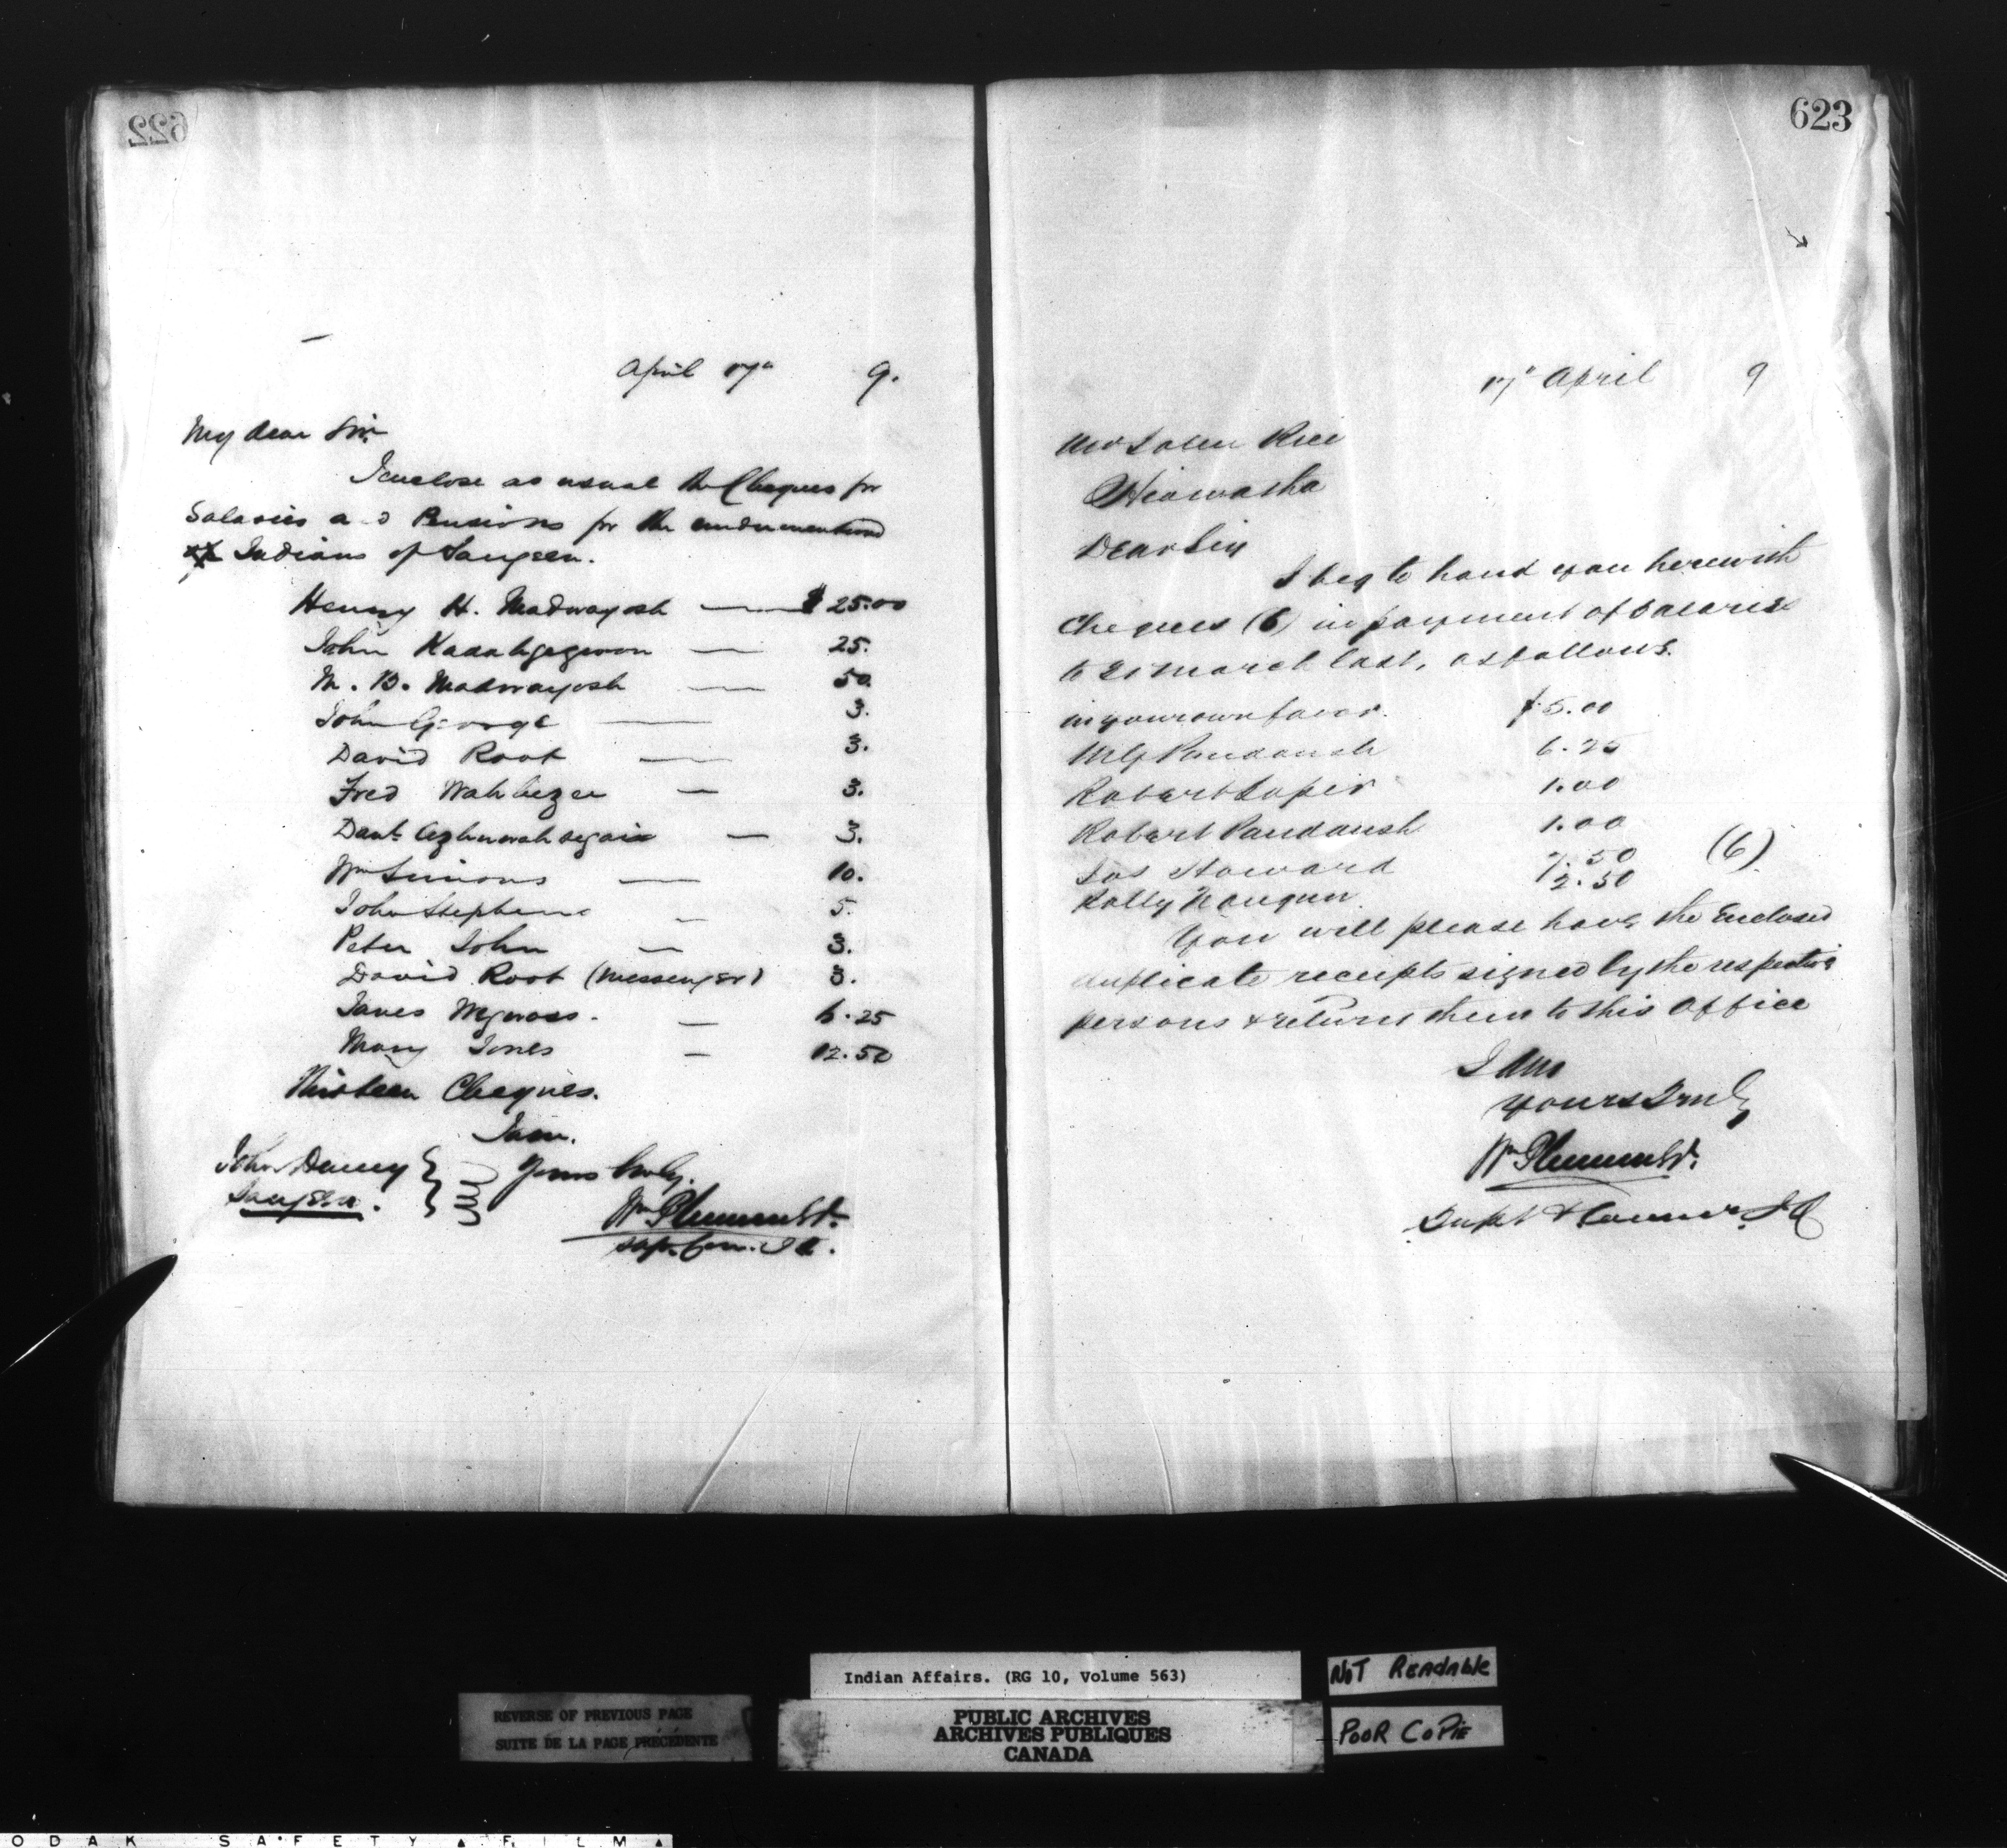 622
April 17th 9.
My dear Sir
I enclose as usual the Cheques for
Salaries and Pensions for the undermentioned
Indians of Saugeen.
Henry H. Madwayosh — $25.00
John Kadahgegwon — 25.
M. B. Madwayosh — 50.
John George — 3.
David Root — 3.
Fred Wahbezee — 3.
— 3.
Wm Simons — 10.
John Stephens — 5.
Peter John — 3.
David Root (Messenger) 3.
James — 6.25
Mary Jones — 12.50
Thirteen Cheques.
I am.
Yours truly.
John Henry
Saugeen.
Wm Plummer
Sup. Com. I A.
623
17th April 9
Rice
Hiawatha
Dear Sir
I beg to hand you herewith
Cheques (6) in payment of Salaries
to 31 March last, as follows.
in your own favor. $5.00
M G Paudaush 6.25
Robert Soper 1.00
Robert Paudaush 1.00
Jos Howard 7.50 (6)
2.50
You will please have the Enclosed
duplicate receipts signed by the respective
persons & return them to this Office
I am
Yours Truly
Wm Plummer
Supt & Commr. I A
Indian Affairs. (RG 10, Volume 563)
NOT READABLE
REVERSE OF PREVIOUS PAGE
SUITE DE LA PAGE PRÉCÉDENTE
PUBLIC ARCHIVES
ARCHIVES PUBLIQUES
CANADA
POOR COPIE
ODAK SAFETY FILM